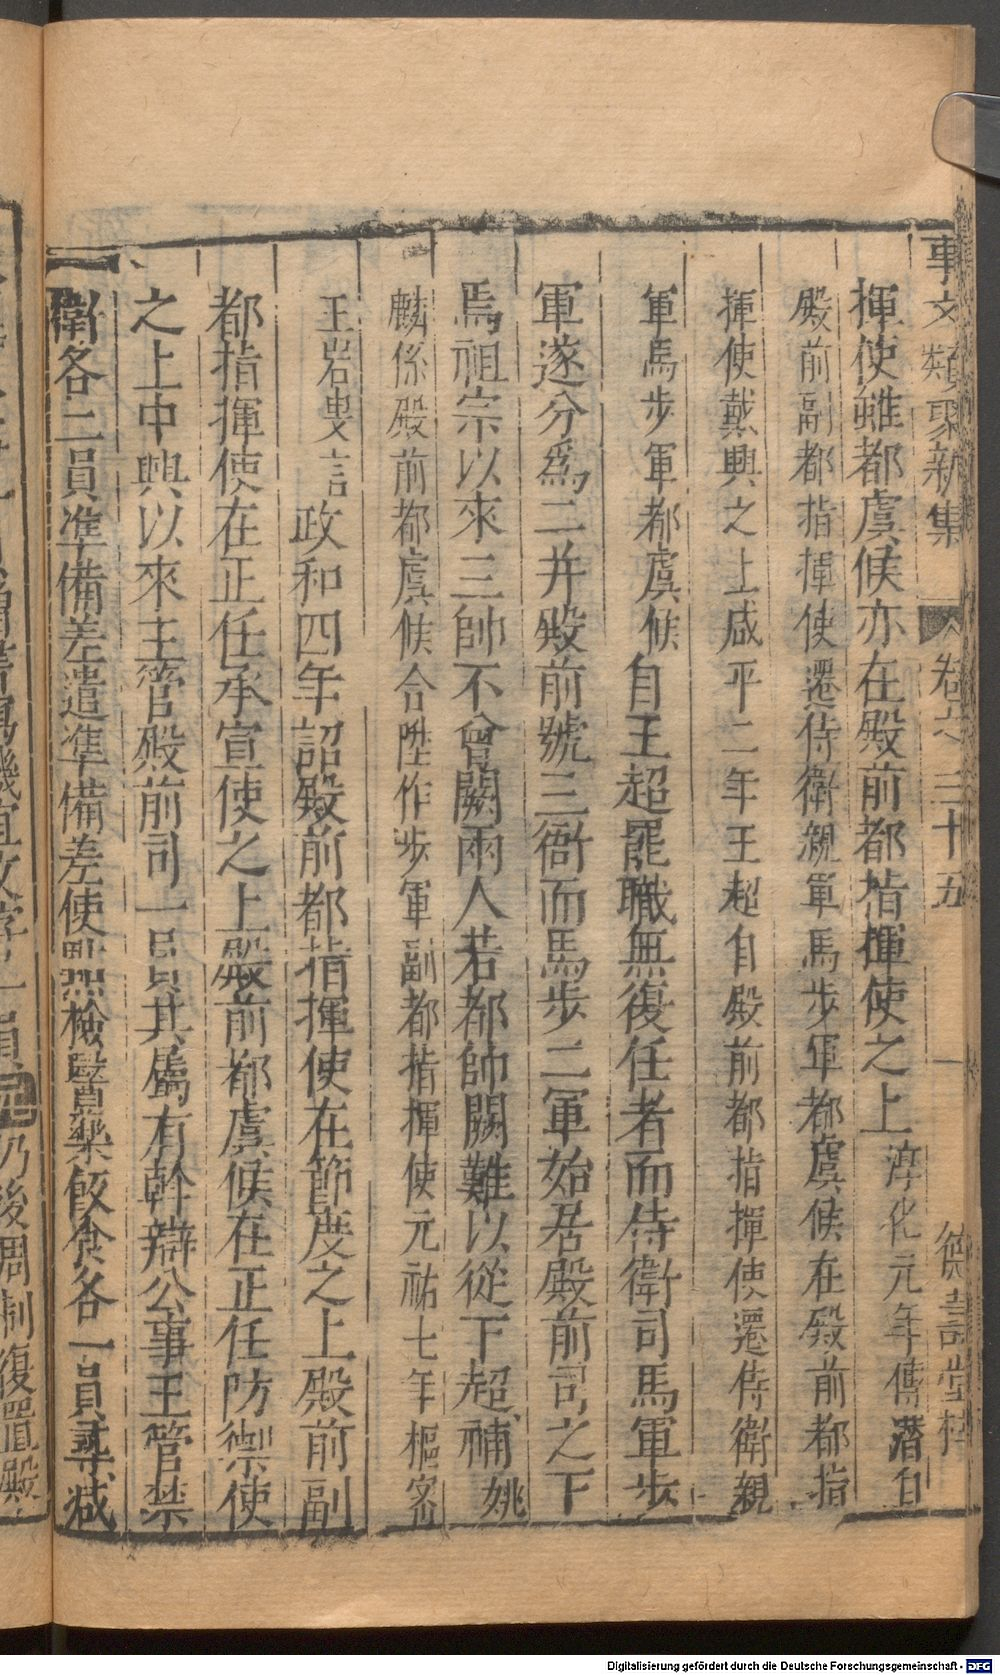 事文類聚新集 卷之三十五 一 德壽堂梓
揮使雖都虞候亦在殿前都指揮使之上 淳化元年傅潜自
殿前副都指揮使遷侍衛親軍馬步軍都虞候在殿前都指
揮使戴興之上咸平二年王超自殿前都指揮使遷侍衛親
軍馬步軍都虞候 自王超罷職無復任者而侍衛司馬軍步
軍遂分爲二并殿前號三衙而馬步二軍始居殿前司之下
焉祖宗以來三帥不曾闕兩人若都帥闕難以從下超補 姚
麟係殿前都虞候合陞作步軍副都指揮使元祐七年樞密
王岩叟言 政和四年詔殿前都指揮使在節度之上殿前副
都指揮使在正任承宣使之上殿前都虞候在正任防禦使
之上中興以來主管殿前司一員其屬有幹辦公事主管禁
衛各二員準備差遣準備差使點檢醫藥飯食各一員尋减
乃後周制復置殿
Digitalisierung gefördert durch die Deutsche Forschungsgemeinschaft - DFG